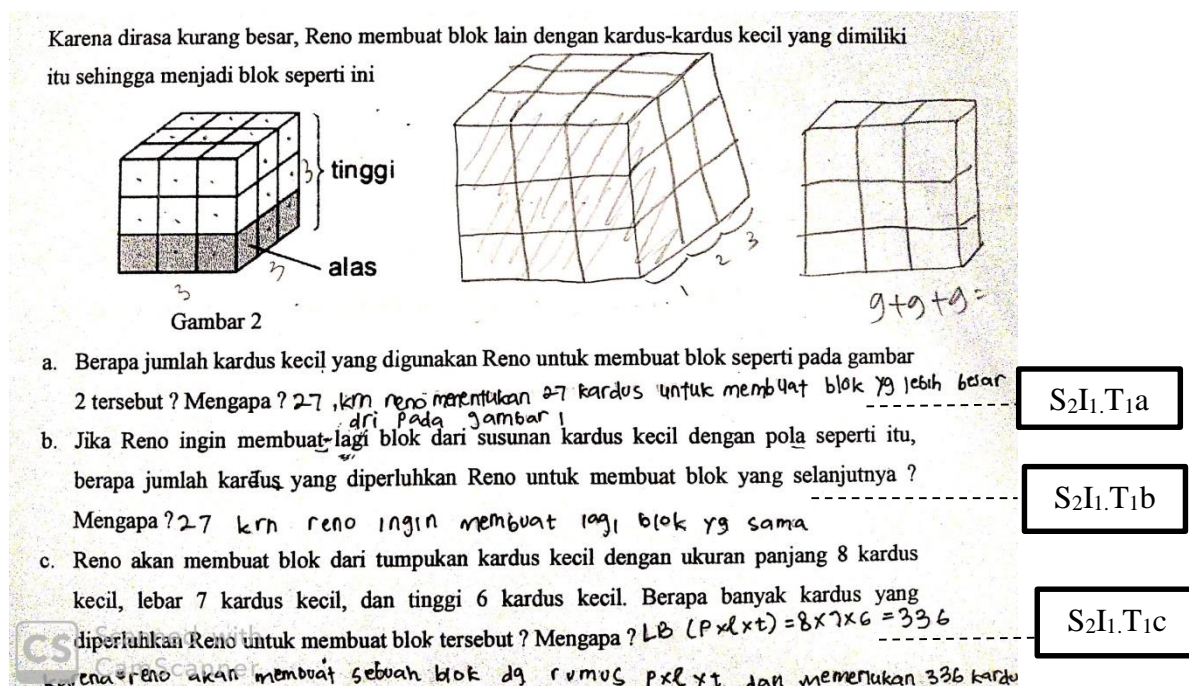 Karena dirasa kurang besar, Reno membuat blok lain dengan kardus-kardus kecil yang dimiliki
itu sehingga menjadi blok seperti ini
3
tinggi
3
3
alas
Gambar 2
1
2
3
9+9+9=
a. Berapa jumlah kardus kecil yang digunakan Reno untuk membuat blok seperti pada gambar
2 tersebut ? Mengapa ? 27 , krn reno menentukan 27 kardus untuk membuat blok yg lebih besar
dri pada gambar 1
S₂I₁.T₁a
b. Jika Reno ingin membuat lagi blok dari susunan kardus kecil dengan pola seperti itu,
berapa jumlah kardus yang diperluhkan Reno untuk membuat blok yang selanjutnya ?
S₂I₁.T₁b
Mengapa ? 27 krn reno ingin membuat lagi blok yg sama
c. Reno akan membuat blok dari tumpukan kardus kecil dengan ukuran panjang 8 kardus
kecil, lebar 7 kardus kecil, dan tinggi 6 kardus kecil. Berapa banyak kardus yang
diperluhkan Reno untuk membuat blok tersebut ? Mengapa ? LB (Pxlxt) = 8x7x6 = 336
S₂I₁.T₁c
karena reno akan membuat sebuah blok dg rumus pxlxt dan memerlukan 336 kardu
CS Scanned with
CamScanner